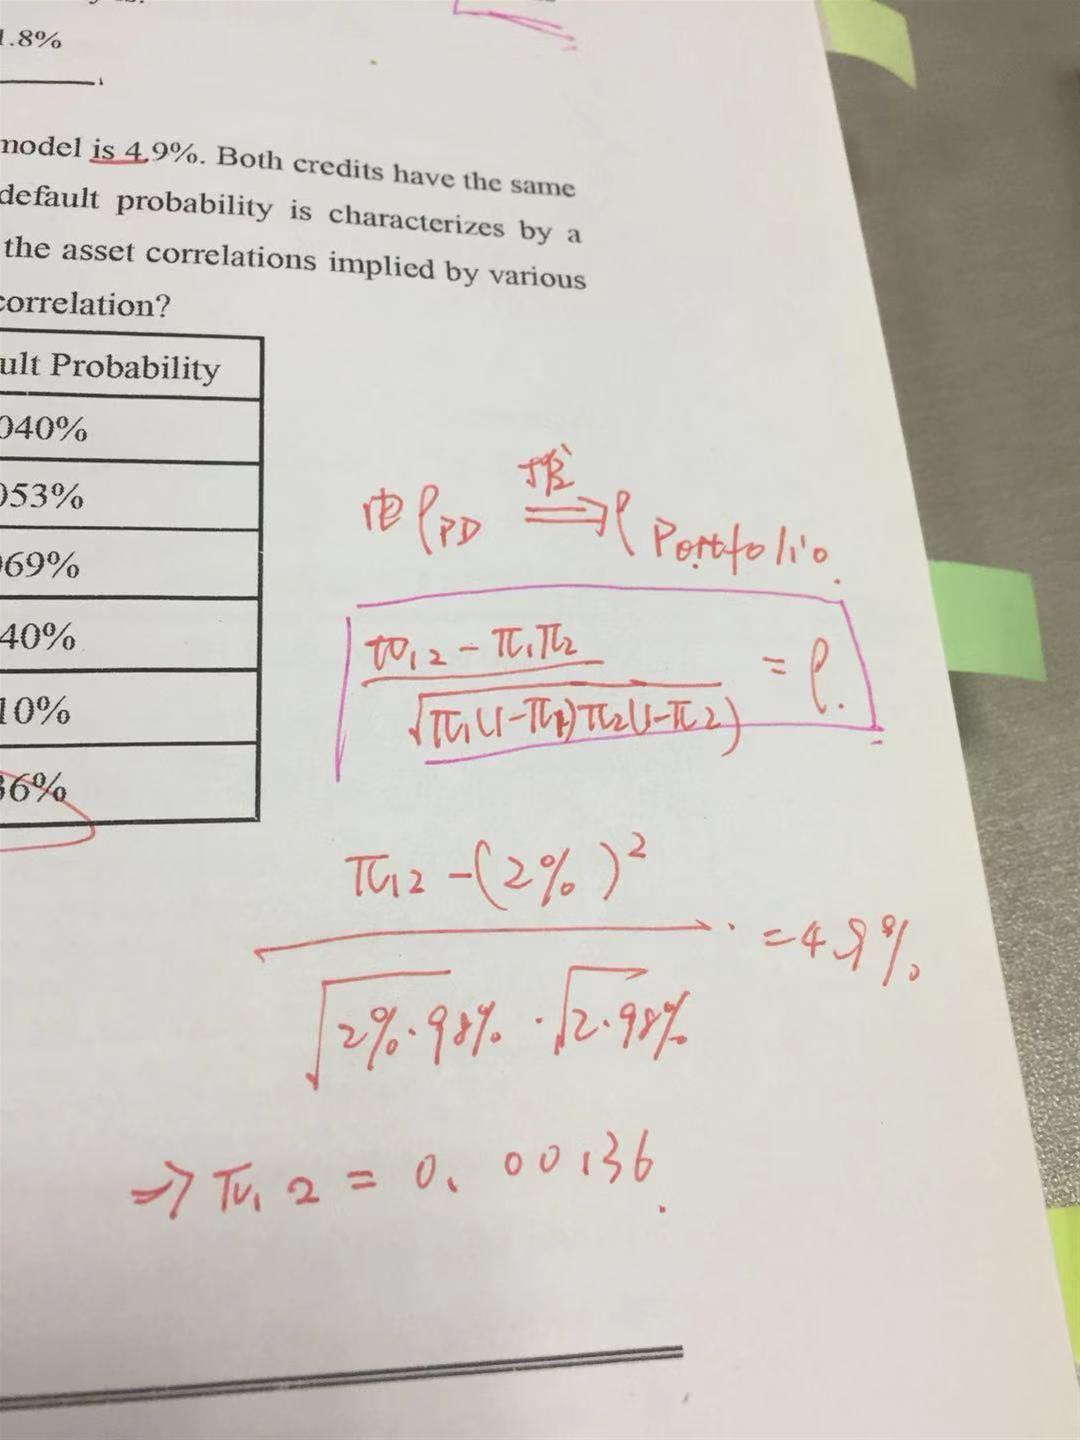 1.8%
model is 4.9%. Both credits have the same
default probability is characterizes by a
the asset correlations implied by various
correlation?
ult Probability
040%
053%
069%
40%
10%
36%
由 ρPD 推⇒ ρ Portfolio.
π12 - π1π2
√π1(1-π1)π2(1-π2) = ρ.
π12 - (2%)²
= 4.9%
√2%·98% · √2·98%
⇒ π12 = 0.00136.